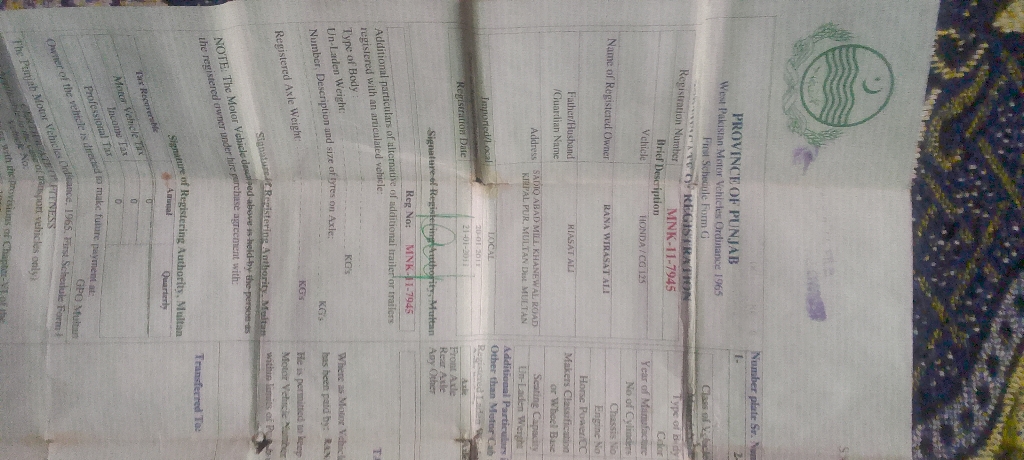 PROVINCE OF PUNJAB
West Pakistan Motor Vehicles Ordinance 1965
First Schedule Form G
OF REGISTRATION
Registration Number MNK-11-7945
Brief Description
Vehicle HONDA/CG125
Name of Registered Owner RANA WIRASAT ALI
Father/Husband
/Guardian Name RIASAT ALI
Address SADIQ ABAD MILL KHANEWAL ROAD
PUR MULTAN Dist. MULTAN
Imported/Local LOCAL
Registration Date 21-01-2011
Signature of Registering Authority, Multan
Reg No: MNK-11-7945
Additional particulars of alternative of additional trailer or trailers
registered with an articulated vehicle
Type of Body
Un-Laden Weight: KG's
Number, Description and size of tyres on Axle:
KG's
Registered Axle Weight: KG's
Signature of Registering Authority, Multan
NOTE: The Motor Vehicle described above is held by the person as
the registered owner under hire purchase agreement with:
Signature of Registering Authority, Multan
Tax Receivable Annual Quarterly
Motor Vehicle Tax 0
Income Tax 0
Professional Tax 0
Owner of the vehicle is directed to make future payment at:
GPO Multan
FITNESS
The Punjab Motor Vehicles Ordinance, 1965, First Schedule Form
vehicles only)
with the provisions of Chapter-VI of the
Number plate Sr. N
1-
2-
Class of
Type of Body
Color
Year of Manufacture
No of Cylinders
Chassis No
Engine No
Horse Power/CC
Makers Classification
or Wheel Base
Seating Capacity
Un-Laden Weight
Additional Particulars
Other than Motor Cab
Registered
Axle
Front Axle
Rear Axle
Any Other
Where as Motor Vehicle
has been paid by: RAN
He is permitted to keep
Motor Vehicle Number
within limits of
Transferred To: